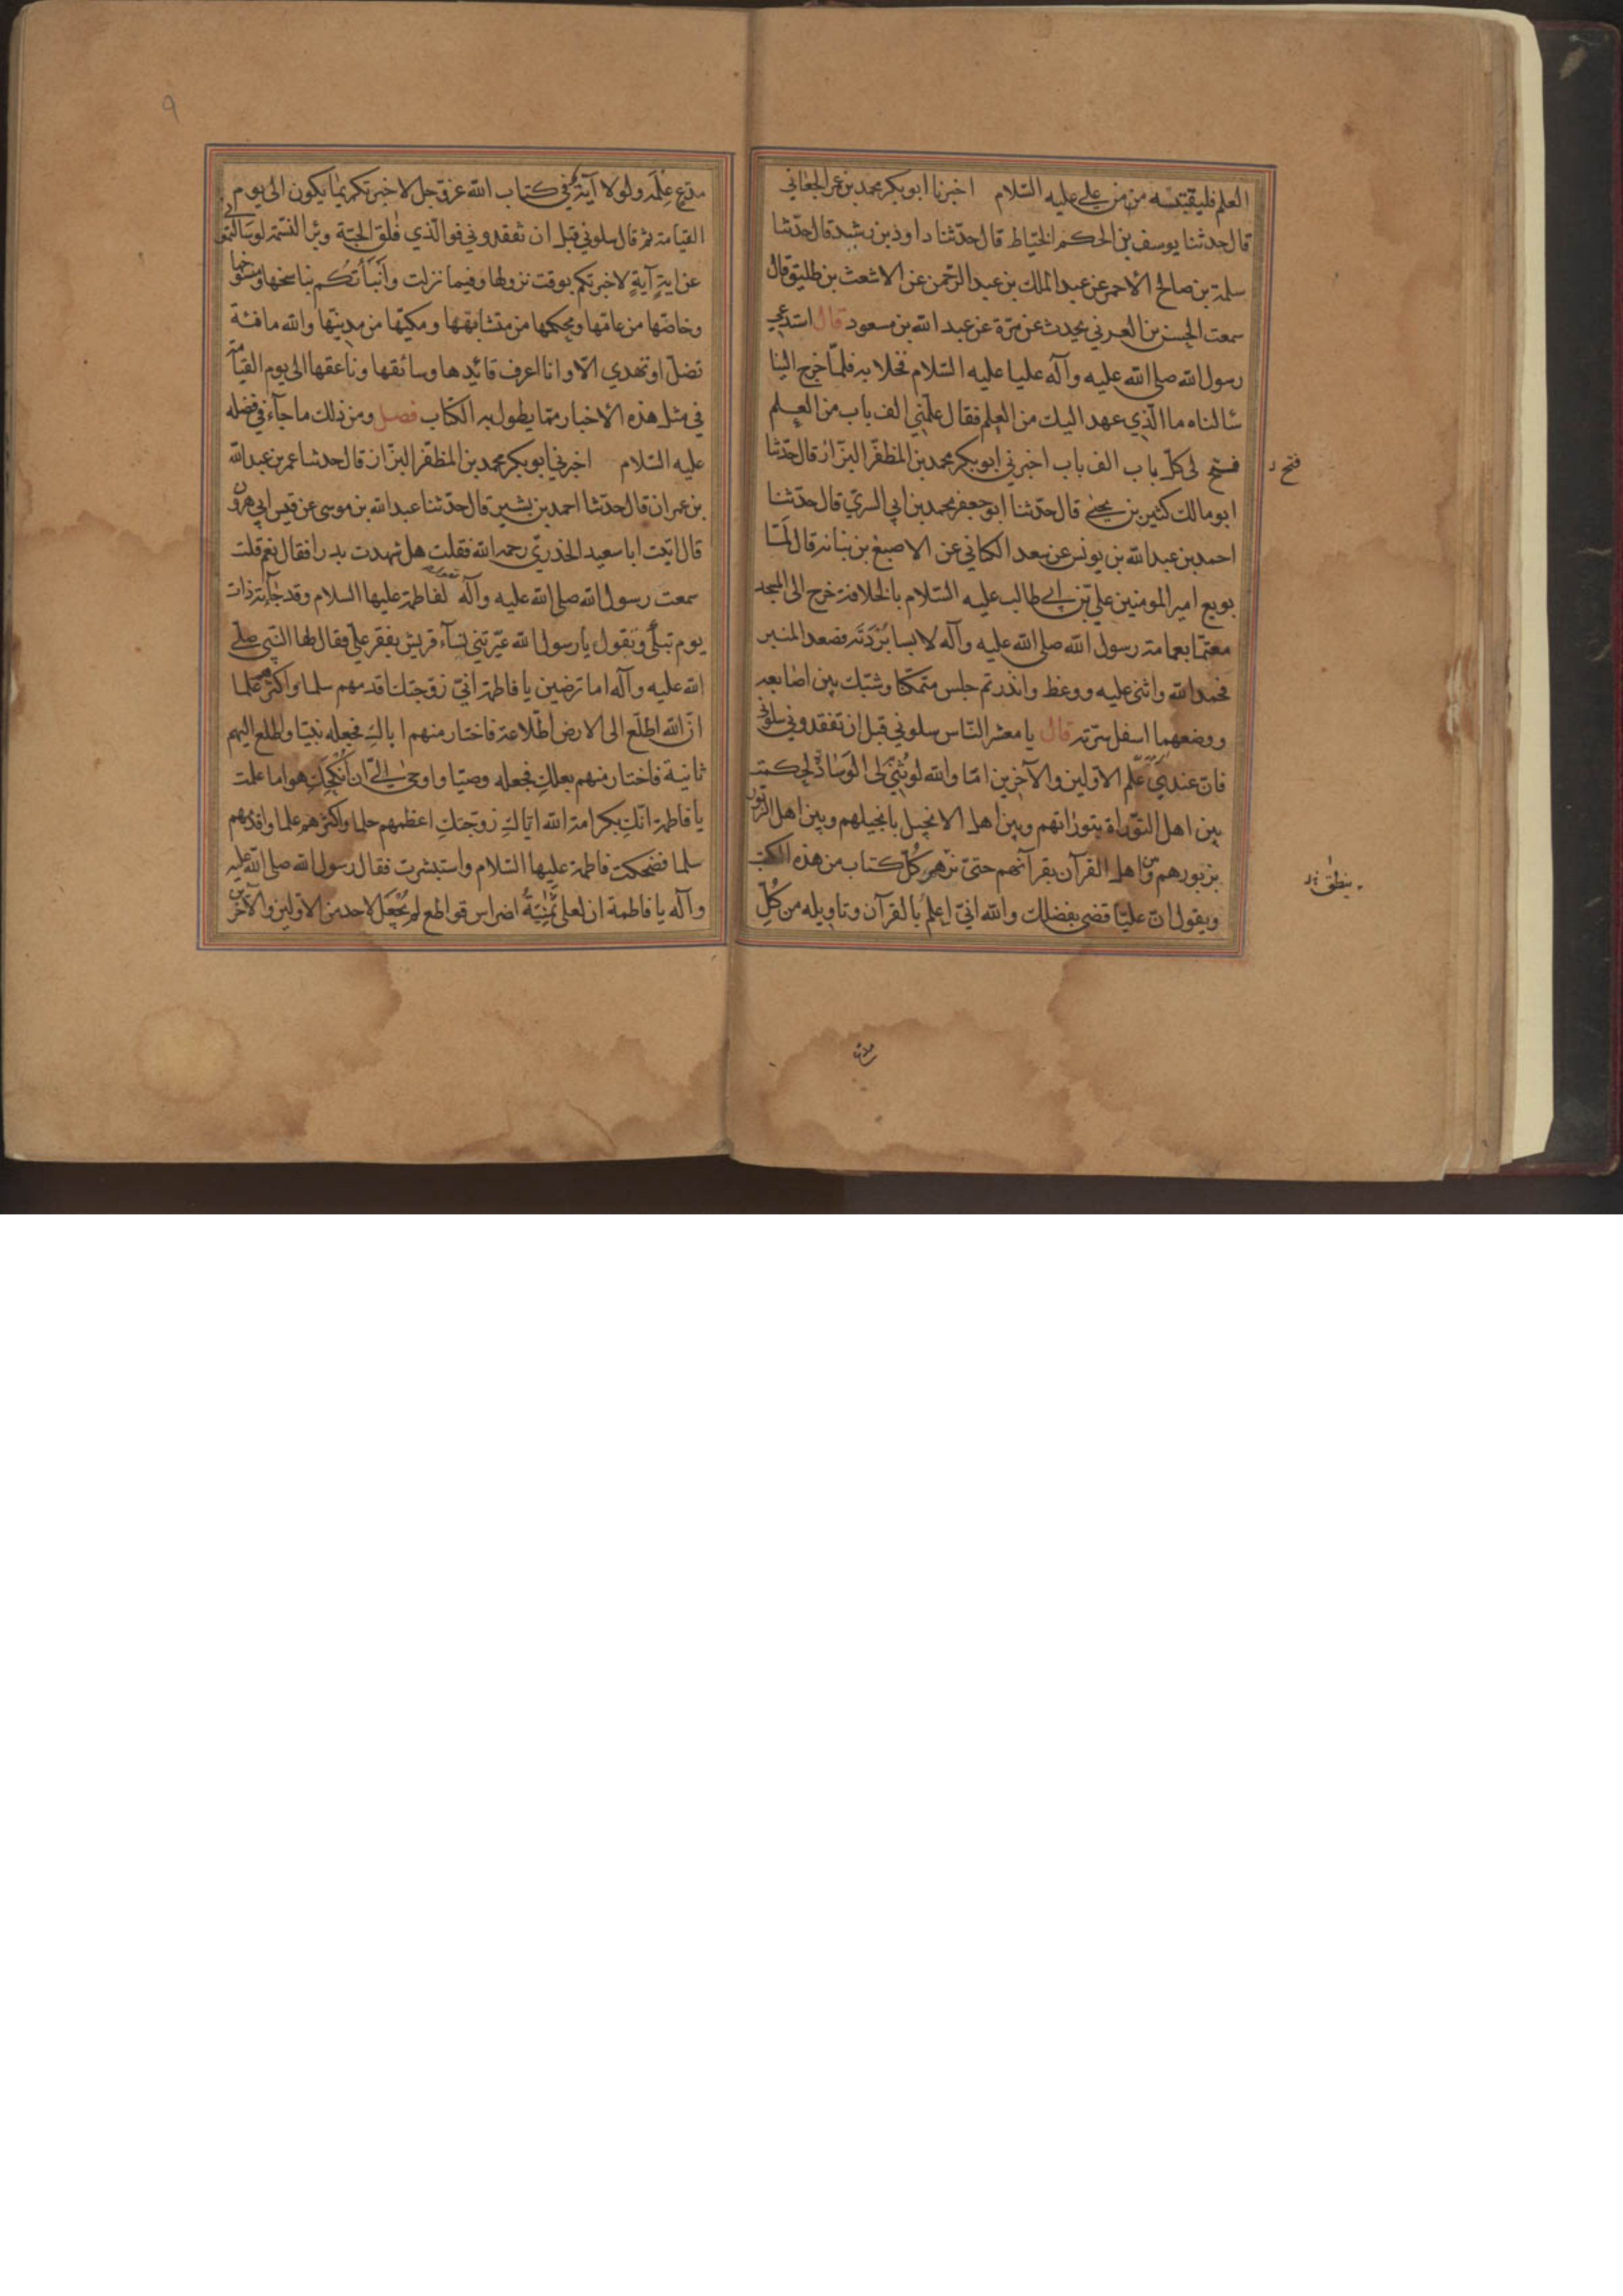 العلم فليقتبسه من من علي عليه السلام اخبرنا ابو بكر محمد بن عمر الجعابي
قال حدثنا يوسف بن الحكم الخياط قال حدثنا داود بن رشيد قال حدثنا
سلمة بن صالح الاحمر عن عبد الملك بن عبد الرحمن عن الاشعث بن طليق قال
سمعت الحسن بن العرني يحدث عن مرة عن عبد الله بن مسعود قال استدعى
رسول الله صلى الله عليه وآله عليا عليه السلام فخلا به فلما خرج الينا
سألناه ما الذي عهد اليك من العلم فقال علمني الف باب من العلم
فتح لي كل باب الف باب اخبرني ابو بكر محمد بن المظفر البزاز قال حدثنا
فتح ر
ابو مالك كثير بن يحيى قال حدثنا ابو جعفر محمد بن ابي السري قال حدثنا
احمد بن عبد الله بن يونس عن سعد الكناني عن الاصبغ بن نباتة قال لما
بويع امير المومنين علي بن ابي طالب عليه السلام بالخلافة خرج الى المسجد
معتما بعمامة رسول الله صلى الله عليه وآله لابسا بردته فصعد المنبر
فحمد الله واثنى عليه ووعظ وانذر ثم جلس متمكنا وشبك بين اصابعه
ووضعهما اسفل سرته قال يا معشر الناس سلوني قبل ان تفقدوني سلوني
فان عندي علم الاولين والآخرين اما والله لو ثني لي الوسادة لحكمت
بين اهل التوراة بتوراتهم وبين اهل الانجيل بانجيلهم وبين اهل الزبور
بزبورهم وبين اهل القرآن بقرآنهم حتى يزهر كل كتاب من هذه الكتب
ينطق
ويقول ان عليا قضى بفضلك والله اني اعلم بالقرآن وتاويله من كل
مدع
٩
مدع علمه ولولا آية في كتاب الله عز وجل لاخبرتكم بما يكون الى يوم
القيامة ثم قال سلوني قبل ان تفقدوني فوالذي فلق الحبة وبرأ النسمة لو سألتموني
عن اية آية لاخبرتكم بوقت نزولها وفيما نزلت وأنبأتكم بناسخها ومنسوخها
وخاصها من عامها ومحكمها من متشابهها ومكيها من مدنيها والله ما فئة
تضل او تهدي الا وانا اعرف قائدها وسائقها وناعقها الى يوم القيامة
في مثل هذه الاخبار مما يطول به الكتاب فصل ومن ذلك ما جآء في فضله
عليه السلام اخبرني ابو بكر محمد بن المظفر البزاز قال حدثنا عمر بن عبد الله
بن عمران قال حدثنا احمد بن بشير قال حدثنا عبد الله بن موسى عن قيس ابي هرون
قال اتيت ابا سعيد الخدري رحمه الله فقلت هل شهدت بدرا فقال نعم قلت
سمعت رسول الله صلى الله عليه وآله يقول لفاطمة عليها السلام وقد جآءته ذات
يوم تبكي وتقول يا رسول الله عيرتني نسآء قريش بفقر علي فقال لها النبي صلى
الله عليه وآله اما ترضين يا فاطمة اني زوجتك اقدمهم سلما واكثرهم علما
ان الله اطلع الى الارض اطلاعة فاختار منهم اباك فجعله نبيا واطلع اليهم
ثانية فاختار منهم بعلك فجعله وصيا واوحى الي ان أنكحك هو اما علمت
يا فاطمة انك بكرامة الله اياك زوجتك اعظمهم حلما واكثرهم علما واقدمهم
سلما فضحكت فاطمة عليها السلام واستبشرت فقال رسول الله صلى الله عليه
وآله يا فاطمة ان لعلي ثمنية اضراس قواطع لم تجعل لاحد من الاولين والآخرين